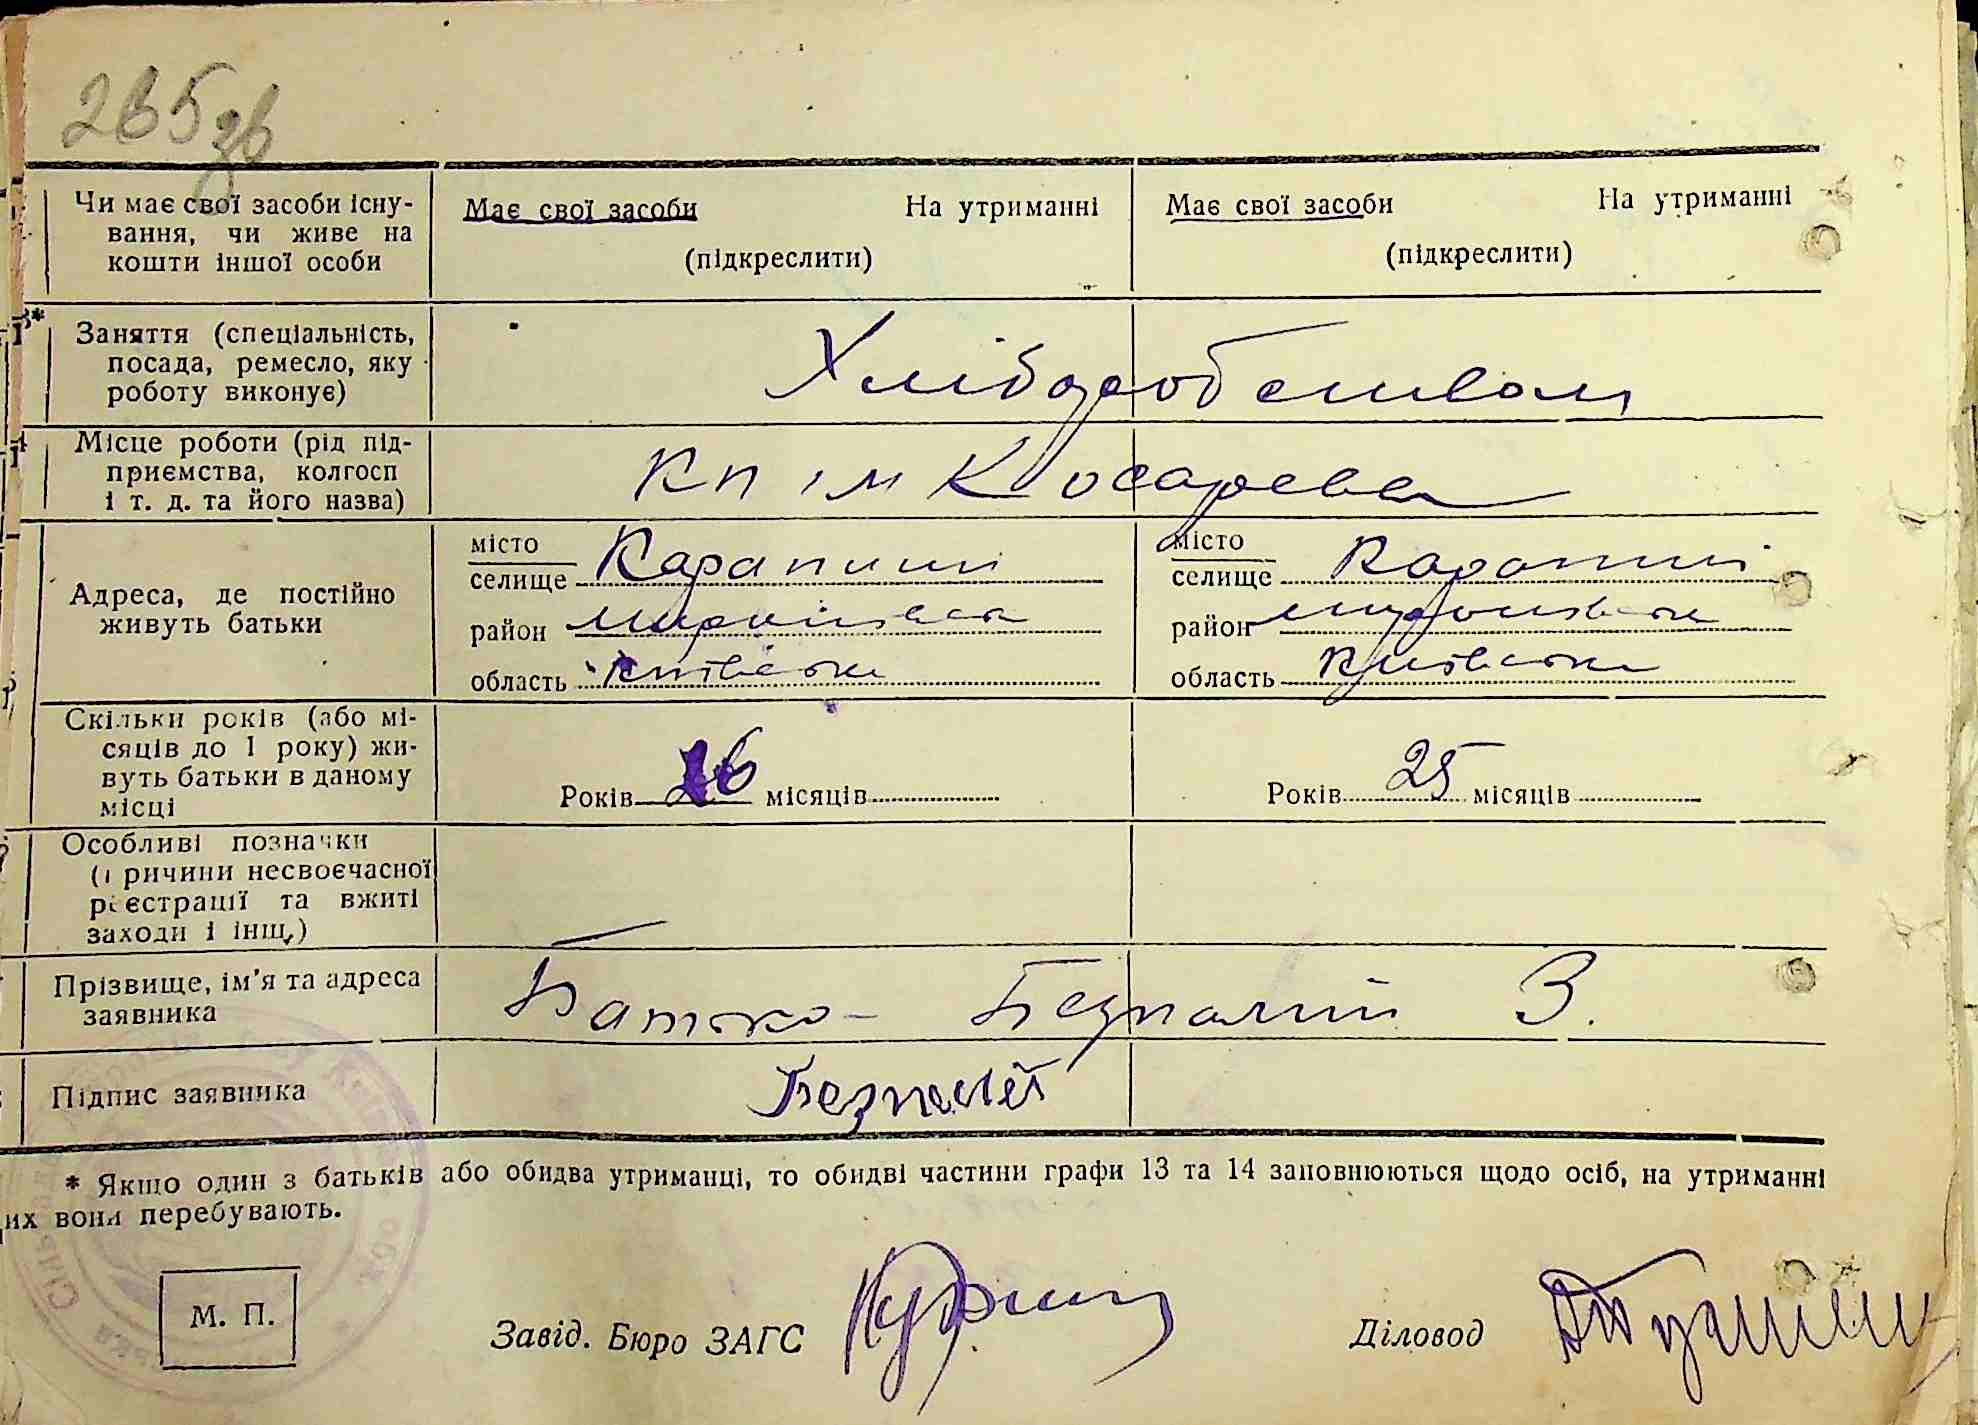 265 зв
Чи має свої засоби існу- Має свої засоби На утриманні Має свої засоби На утриманні
вання, чи живе на
кошти іншої особи (підкреслити) (підкреслити)
13*
Заняття (спеціальність,
посада, ремесло, яку Хліборобством
роботу виконує)
14
Місце роботи (рід під-
приємства, колгосп Кп ім Косарева
і т. д. та його назва)
місто місто
селище Карапиші селище Карапиші
Адреса, де постійно
живуть батьки район Миронівськ район Миронівськ
область Київська область Київська
Скільки років (або мі-
сяців до 1 року) жи-
вуть батьки в даному Років 26 місяців Років 25 місяців
місці
Особливі позначки
(причини несвоєчасної
реєстрації та вжиті
заходи і інщ.)
Прізвище, ім'я та адреса
заявника Батько - Безпалий З.
Підпис заявника Безпалий
* Якщо один з батьків або обидва утриманці, то обидві частини графи 13 та 14 заповнюються щодо осіб, на утриманні
их вони перебувають.
М. П. Завід. Бюро ЗАГС Діловод